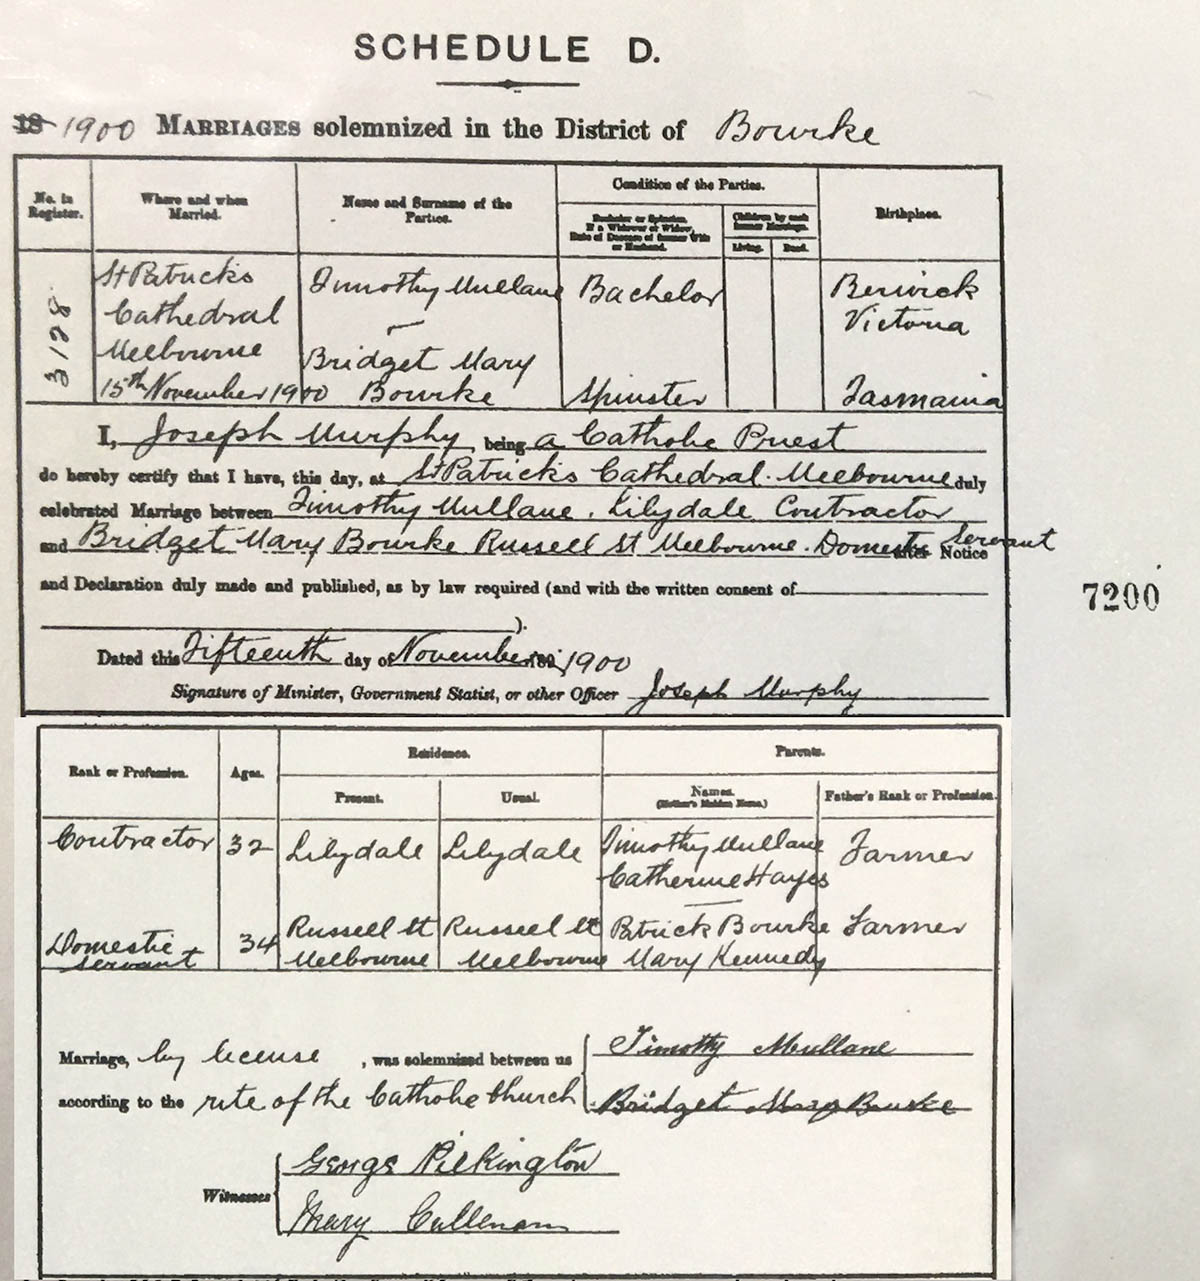 SCHEDULE D.
18 1900 MARRIAGES solemnized in the District of Bourke
No. in Register.
Where and when Married.
Name and Surname of the Parties.
Condition of the Parties.
Bachelor or Spinster. If a Widower or Widow, Date of Decease of former Wife or Husband.
Children by each former Marriage.
Living.
Dead.
Birthplace.
3128
St Patricks
Cathedral
Melbourne
15th November 1900
Timothy Mullane
Bridget Mary
Bourke
Bachelor
Spinster
Berwick
Victoria
Tasmania
I, Joseph Murphy being a Catholic Priest
do hereby certify that I have, this day, at St Patricks Cathedral. Melbourne duly
celebrated Marriage between Timothy Mullane. Lilydale Contractor
and Bridget Mary Bourke Russell St Melbourne. Domestic Servant after Notice
and Declaration duly made and published, as by law required (and with the written consent of
).
7200
Dated this Fifteenth day of November 189 , 1900
Signature of Minister, Government Statist, or other Officer Joseph Murphy
Rank or Profession.
Ages.
Residence.
Present.
Usual.
Parents.
Names.
(Mother's Maiden Name.)
Father's Rank or Profession.
Contractor 32 Lilydale Lilydale Timothy Mullane Farmer
Catherine Hayes
Domestic servant 34 Russell St Melbourne Russell St Melbourne Patrick Bourke Farmer
Mary Kennedy
Marriage, by license , was solemnized between us
according to the rite of the Catholic Church
Timothy Mullane
Bridget Mary Bourke
Witnesses
George Pilkington
Mary Cullenan